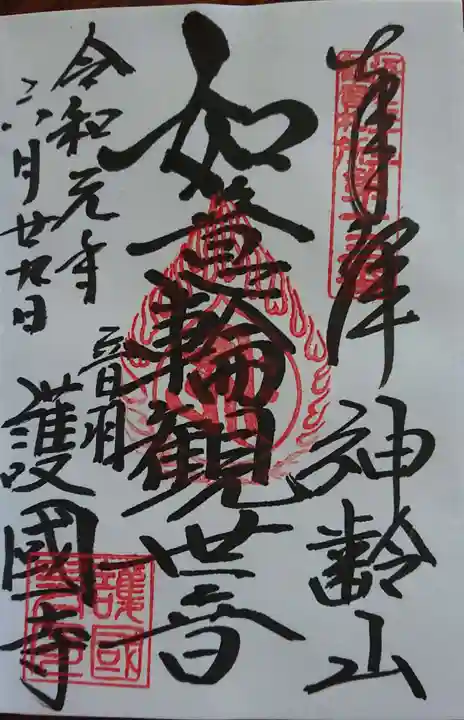 奉拝
神齢山
如意輪観世音
令和元年
六月廿九日
音羽
護國寺